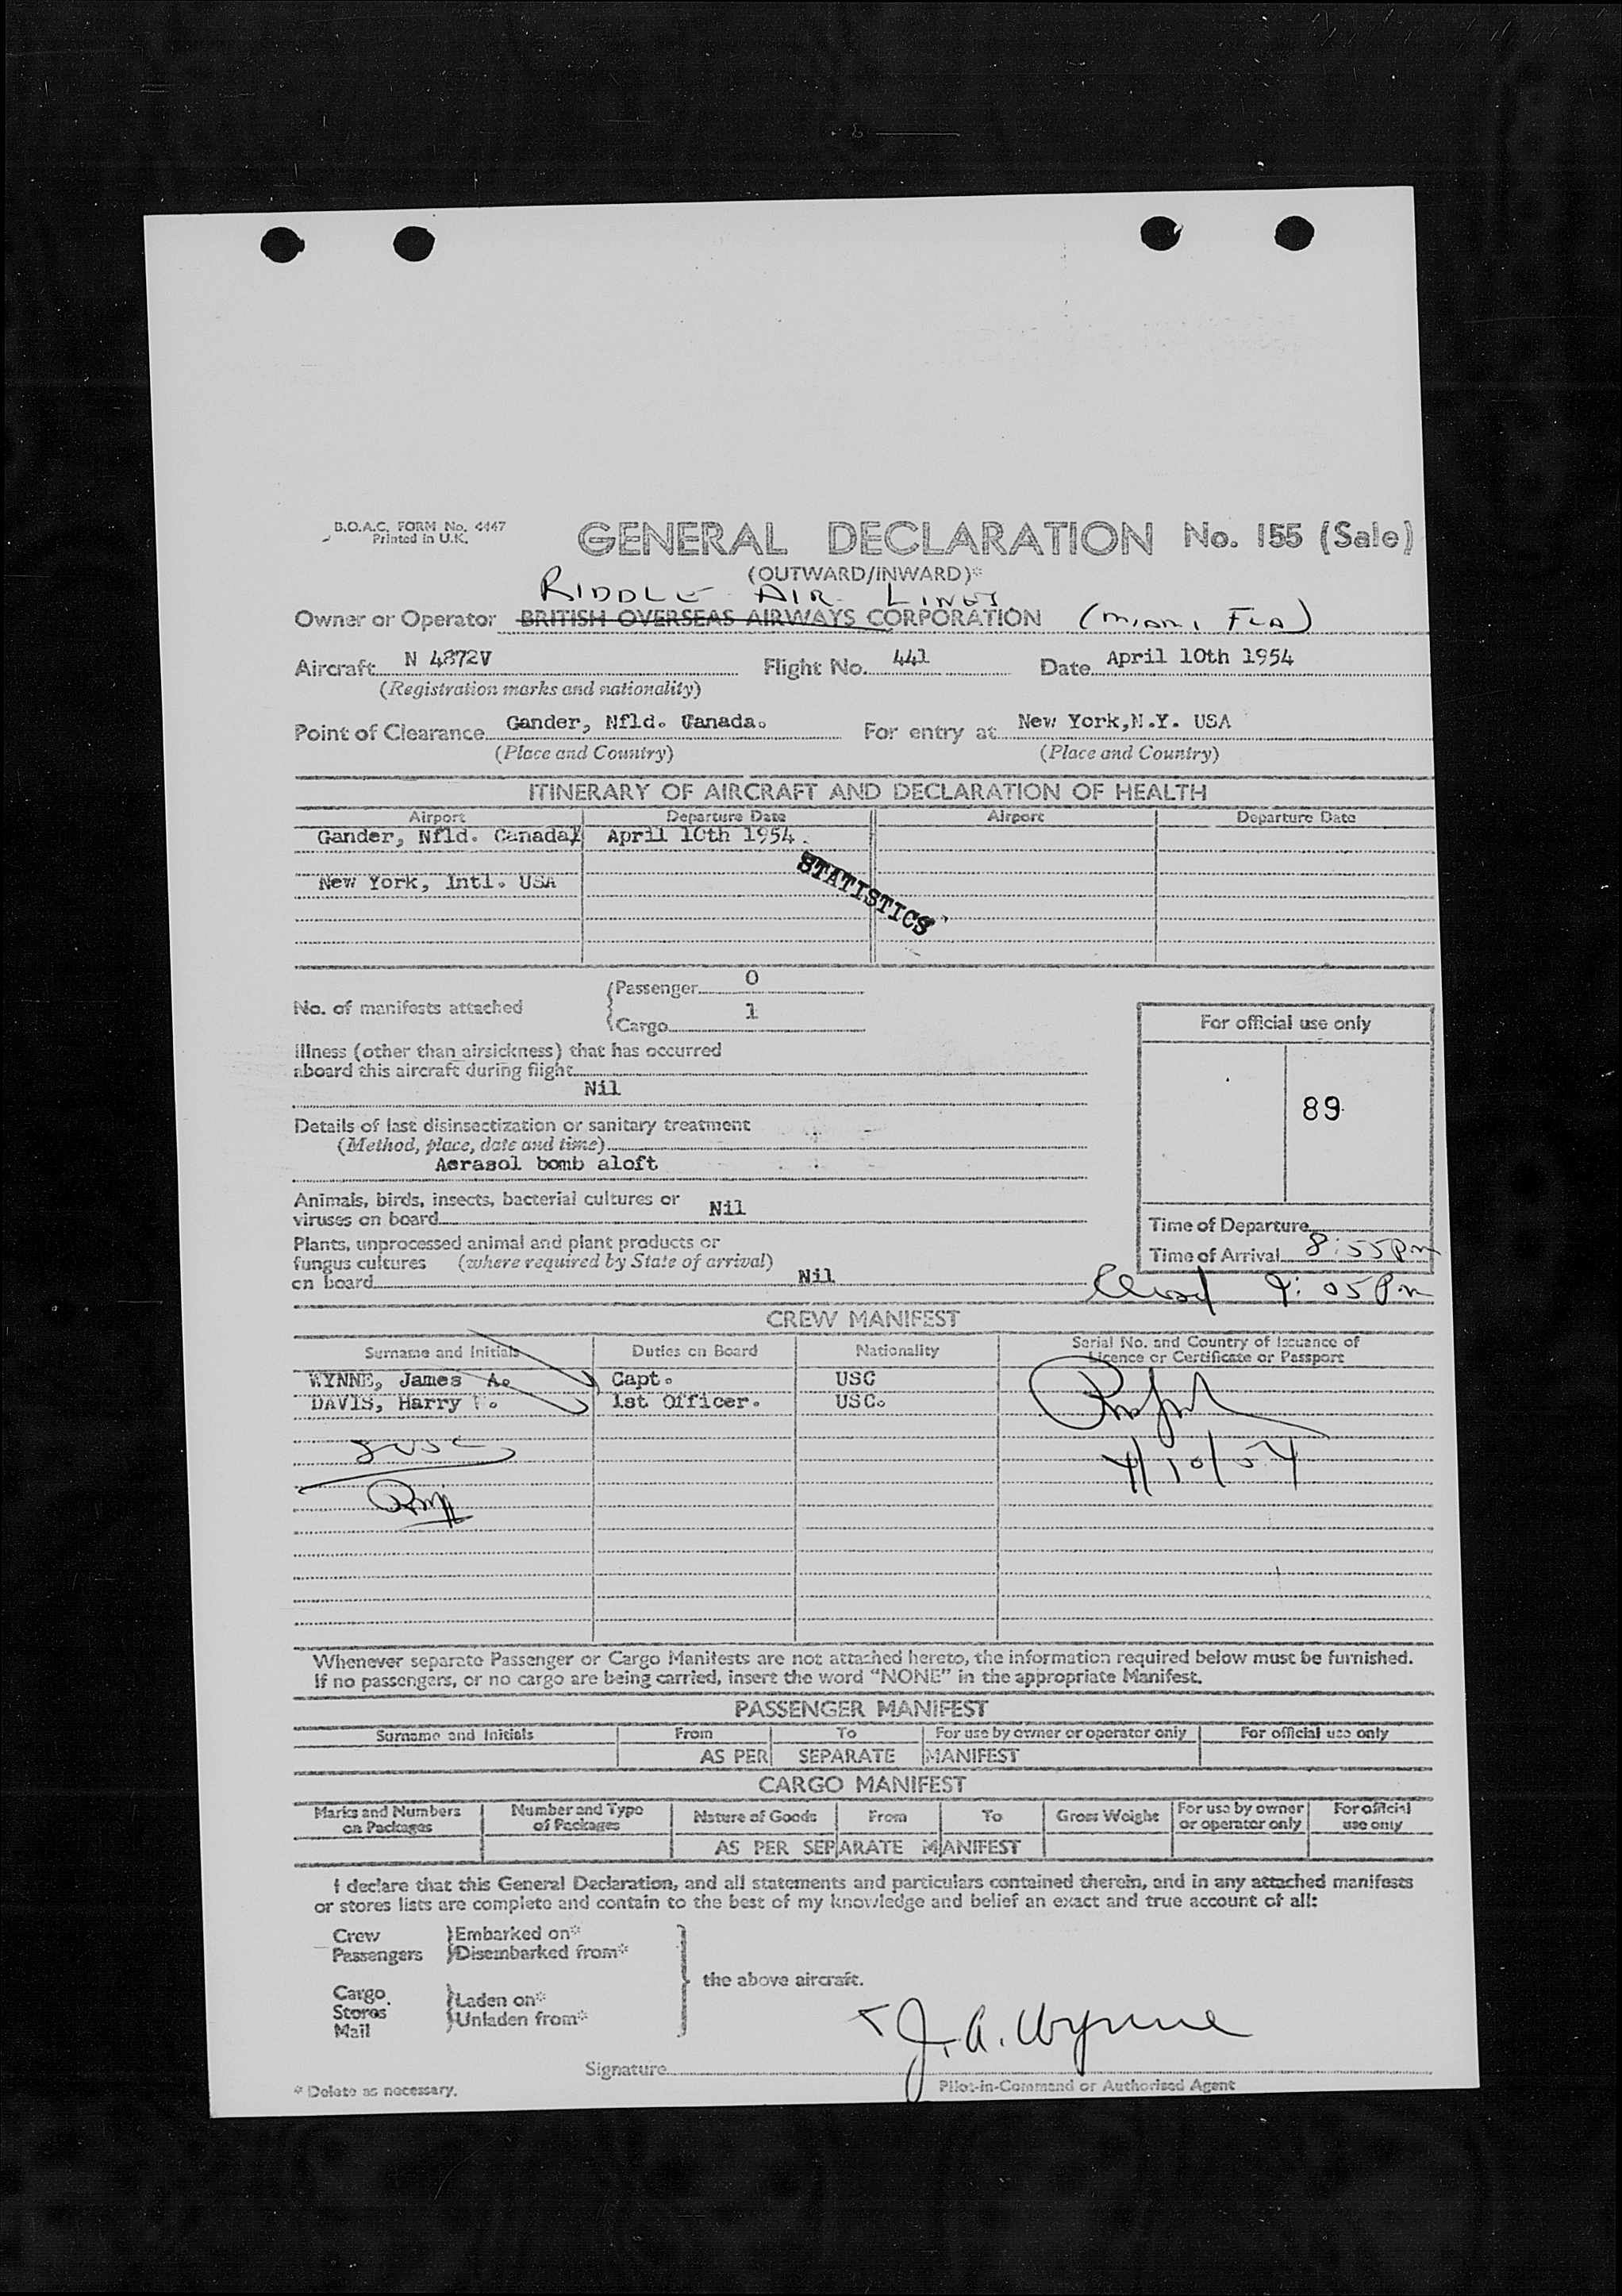 B.O.A.C. FORM No. 4447
Printed in U.K.
GENERAL DECLARATION No. 155 (Sale)
(OUTWARD/INWARD)*
RIDDLE AIR LINES
Owner or Operator BRITISH OVERSEAS AIRWAYS CORPORATION (MIAMI FLA)
Aircraft N 4872V Flight No. 441 Date April 10th 1954
(Registration marks and nationality)
Point of Clearance Gander, Nfld. Canada. For entry at New York,N.Y. USA
(Place and Country) (Place and Country)
ITINERARY OF AIRCRAFT AND DECLARATION OF HEALTH
Airport Departure Date Airport Departure Date
Gander, Nfld. Canada April 10th 1954.
New York, Intl. USA
STATISTICS
No. of manifests attached
Passenger 0
Cargo 1
For official use only
89
Illness (other than airsickness) that has occurred
aboard this aircraft during flight
Nil
Details of last disinsectization or sanitary treatment
(Method, place, date and time)
Aerasol bomb aloft
Animals, birds, insects, bacterial cultures or
viruses on board Nil
Time of Departure
Plants, unprocessed animal and plant products or
fungus cultures (where required by State of arrival)
on board Nil
Time of Arrival 8:55pm
9:05 Pm
CREW MANIFEST
Surname and Initials Duties on Board Nationality Serial No. and Country of Issuance of
Licence or Certificate or Passport
WYNNE, James A. Capt. USC
DAVIS, Harry . 1st Officer. USC.
4/10/54
Whenever separate Passenger or Cargo Manifests are not attached hereto, the information required below must be furnished.
If no passengers, or no cargo are being carried, insert the word “NONE” in the appropriate Manifest.
PASSENGER MANIFEST
Surname and Initials From To For use by owner or operator only For official use only
AS PER SEPARATE MANIFEST
CARGO MANIFEST
Marks and Numbers on Packages Number and Type of Packages Nature of Goods From To Gross Weight For use by owner or operator only For official use only
AS PER SEPARATE MANIFEST
I declare that this General Declaration, and all statements and particulars contained therein, and in any attached manifests
or stores lists are complete and contain to the best of my knowledge and belief an exact and true account of all:
Crew Embarked on*
Passengers Disembarked from*
the above aircraft.
Cargo
Stores Laden on*
Mail Unladen from*
J. A. Wynne
Signature
* Delete as necessary. Pilot-in-Command or Authorised Agent